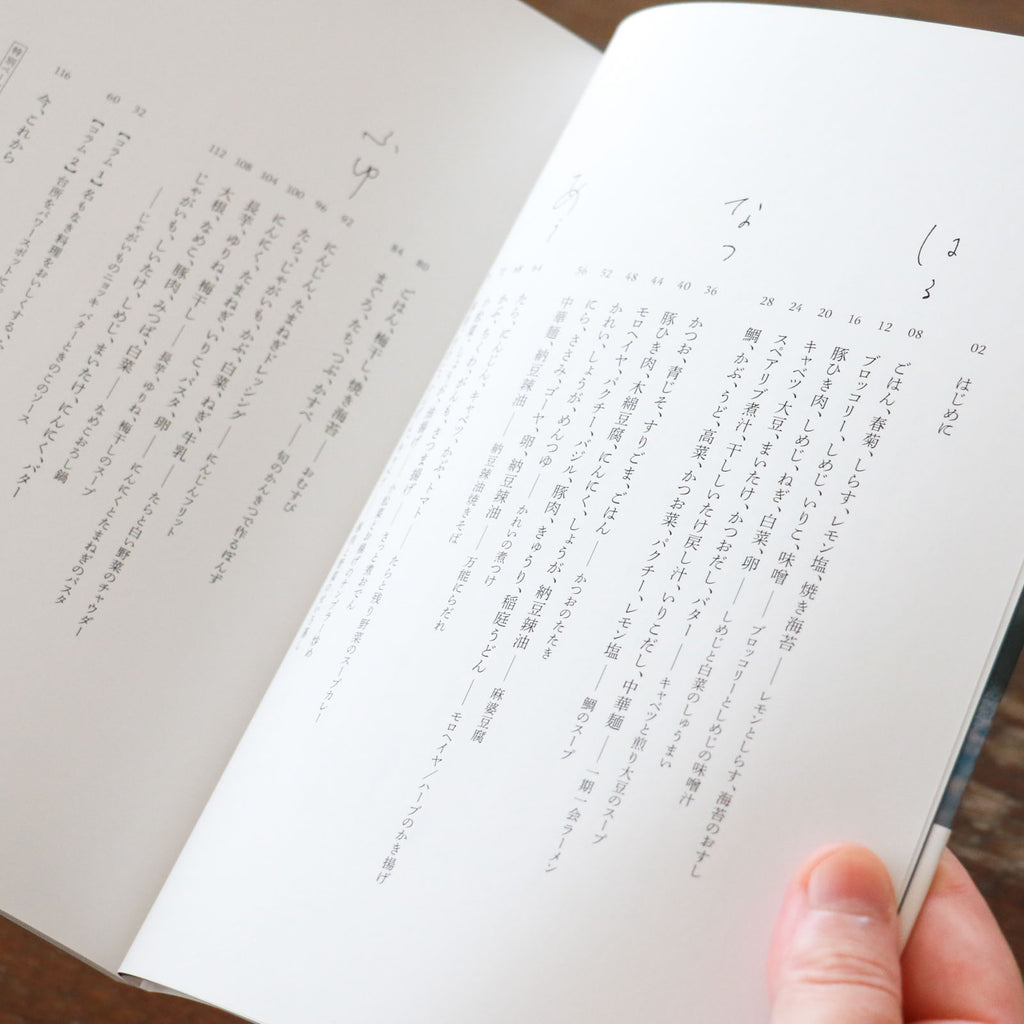 02 はじめに
はる
08 ごはん、春菊、しらす、レモン塩、焼き海苔 —— レモンとしらす、海苔のおすし
12 ブロッコリー、しめじ、いりこ、味噌 —— ブロッコリーとしめじの味噌汁
16 豚ひき肉、しめじ、ねぎ、白菜、卵 —— しめじと白菜のしゅうまい
20 キャベツ、大豆、まいたけ、かつおだし、バター —— キャベツと煎り大豆のスープ
24 スペアリブ煮汁、干ししいたけ戻し汁、いりこだし、中華麺 —— 一期一会ラーメン
28 鯛、かぶ、うど、高菜、かつお菜、パクチー、レモン塩 —— 鯛のスープ
なつ
36 かつお、青じそ、すりごま、ごはん —— かつおのたたき
40 豚ひき肉、木綿豆腐、にんにく、しょうが、納豆辣油 —— 麻婆豆腐
44 モロヘイヤ、パクチー、バジル、豚肉、きゅうり、稲庭うどん —— モロヘイヤ/ハーブのかき揚げ
48 かれい、しょうが、めんつゆ —— かれいの煮つけ
52 にら、ささみ、ゴーヤ、卵、納豆辣油 —— 万能にらだれ
56 中華麺、納豆辣油 —— 納豆辣油焼きそば
あき
64 たら、にんじん、キャベツ、かぶ、トマト —— たらと残り野菜のスープカレー
68
ふゆ
80 ごはん、梅干し、焼き海苔 —— おむすび
84 まぐろ、たち、つぶ、かすべ —— 旬のかんきつで作るぽんず
92 にんじん、たまねぎドレッシング —— にんじんフリット
96 たら、じゃがいも、かぶ、白菜、ねぎ、牛乳 —— たらと白い野菜のチャウダー
100 にんにく、たまねぎ、いりこ、パスタ、卵 —— にんにくとたまねぎのパスタ
104 長芋、ゆりね、梅干し —— 長芋、ゆりね、梅干しのスープ
108 大根、なめこ、豚肉、みつば、白菜 —— なめこおろし鍋
112 じゃがいも、しいたけ、しめじ、まいたけ、にんにく、バター —— じゃがいものニョッキ バターときのこのソース
32 【コラム1】名もなき料理をおいしくする、
60 【コラム2】台所をパワースポットに
116 今、これから
特別ペー